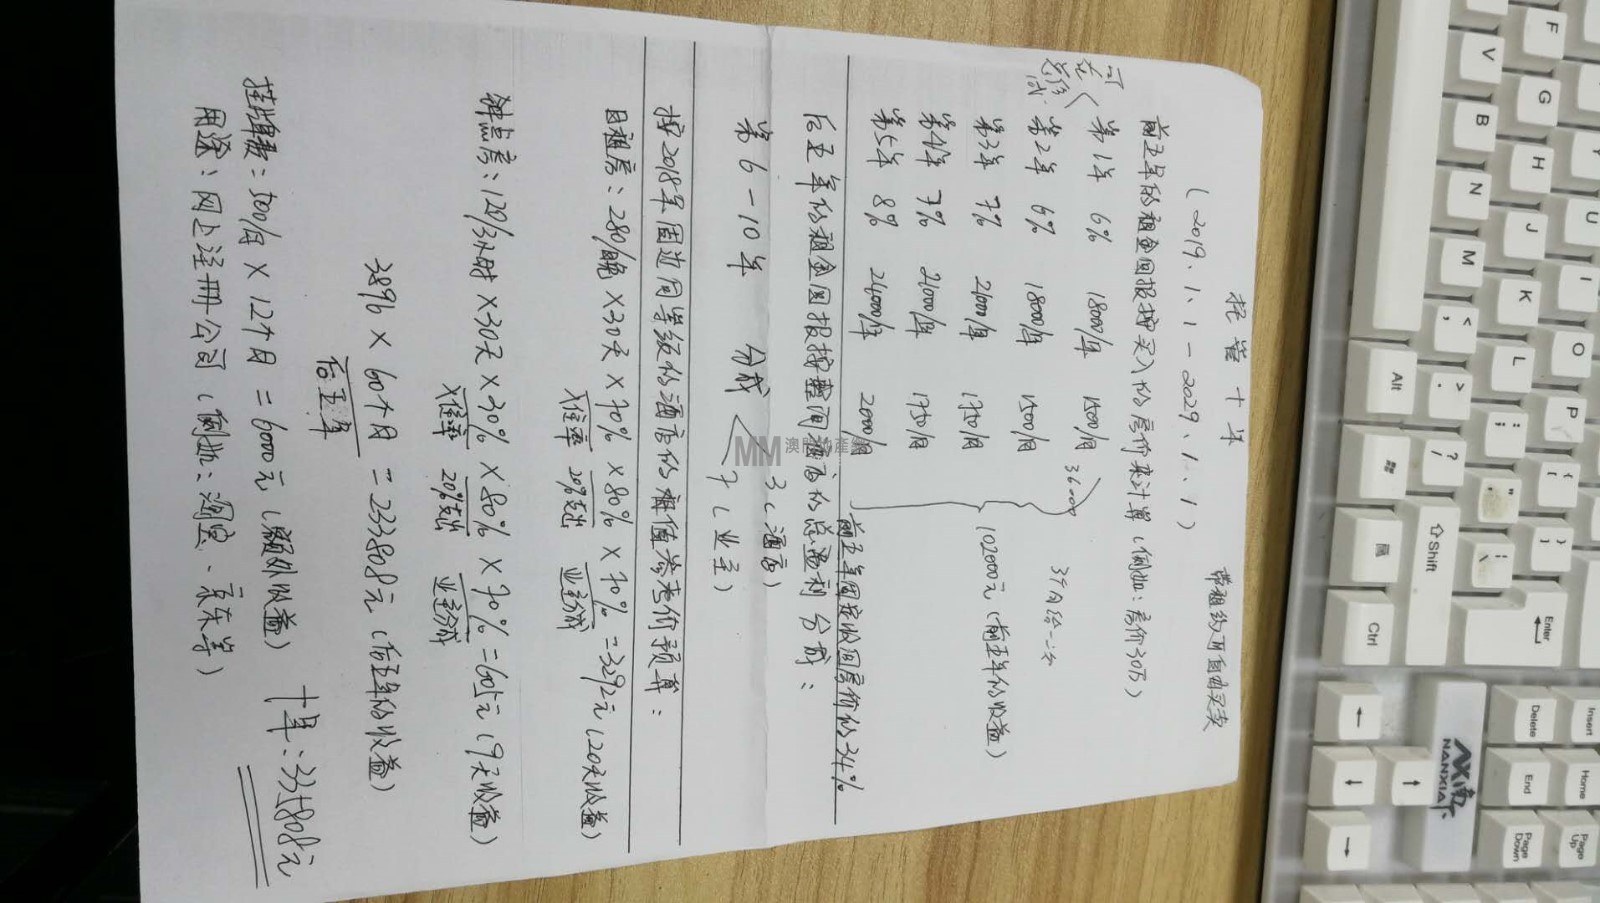 托管十年
(2019.1.1-2029.1.1)
带租约可自由买卖
前五年的租金回报按买入价房价来计算(例如:房价30万)
可在总价减
第1年 6% 18000/年 1500/月
第2年 6% 18000/年 1500/月
36000
第3年 7% 21000/年 1750/月
第4年 7% 21000/年 1750/月
第5年 8% 24000/年 2000/月
3个月给一次
102000元(前五年的收益)
前五年固定收回房价的34%
后五年的租金回报按整间酒店的总盈利分成:
第6-10年 分成
3(酒店)
7(业主)
按2018年周边同等级的酒店的 价预算:
日租房:280/晚×30天×70%×80%×70%=3292元(20天收益)
入住率 20%支出 业主分成
钟点房:120/3小时×30天×30%×80%×70%=605元(9天收益)
入住率 20%支出 业主分成
3896×60个月=233808元(后五年的收益)
后五年
挂牌费:500/月×12个月=6000元(额外收益)
十年:335808元
用途:网上注册公司(例如:淘宝、京东等)
MM 澳門
Alt
Shift
Ctrl
Enter
Delete
Insert
End
Home
Page Down
Page Up
NANXIAT
F
V
G
B
H
N
J
U
M
I
K
L
O
P